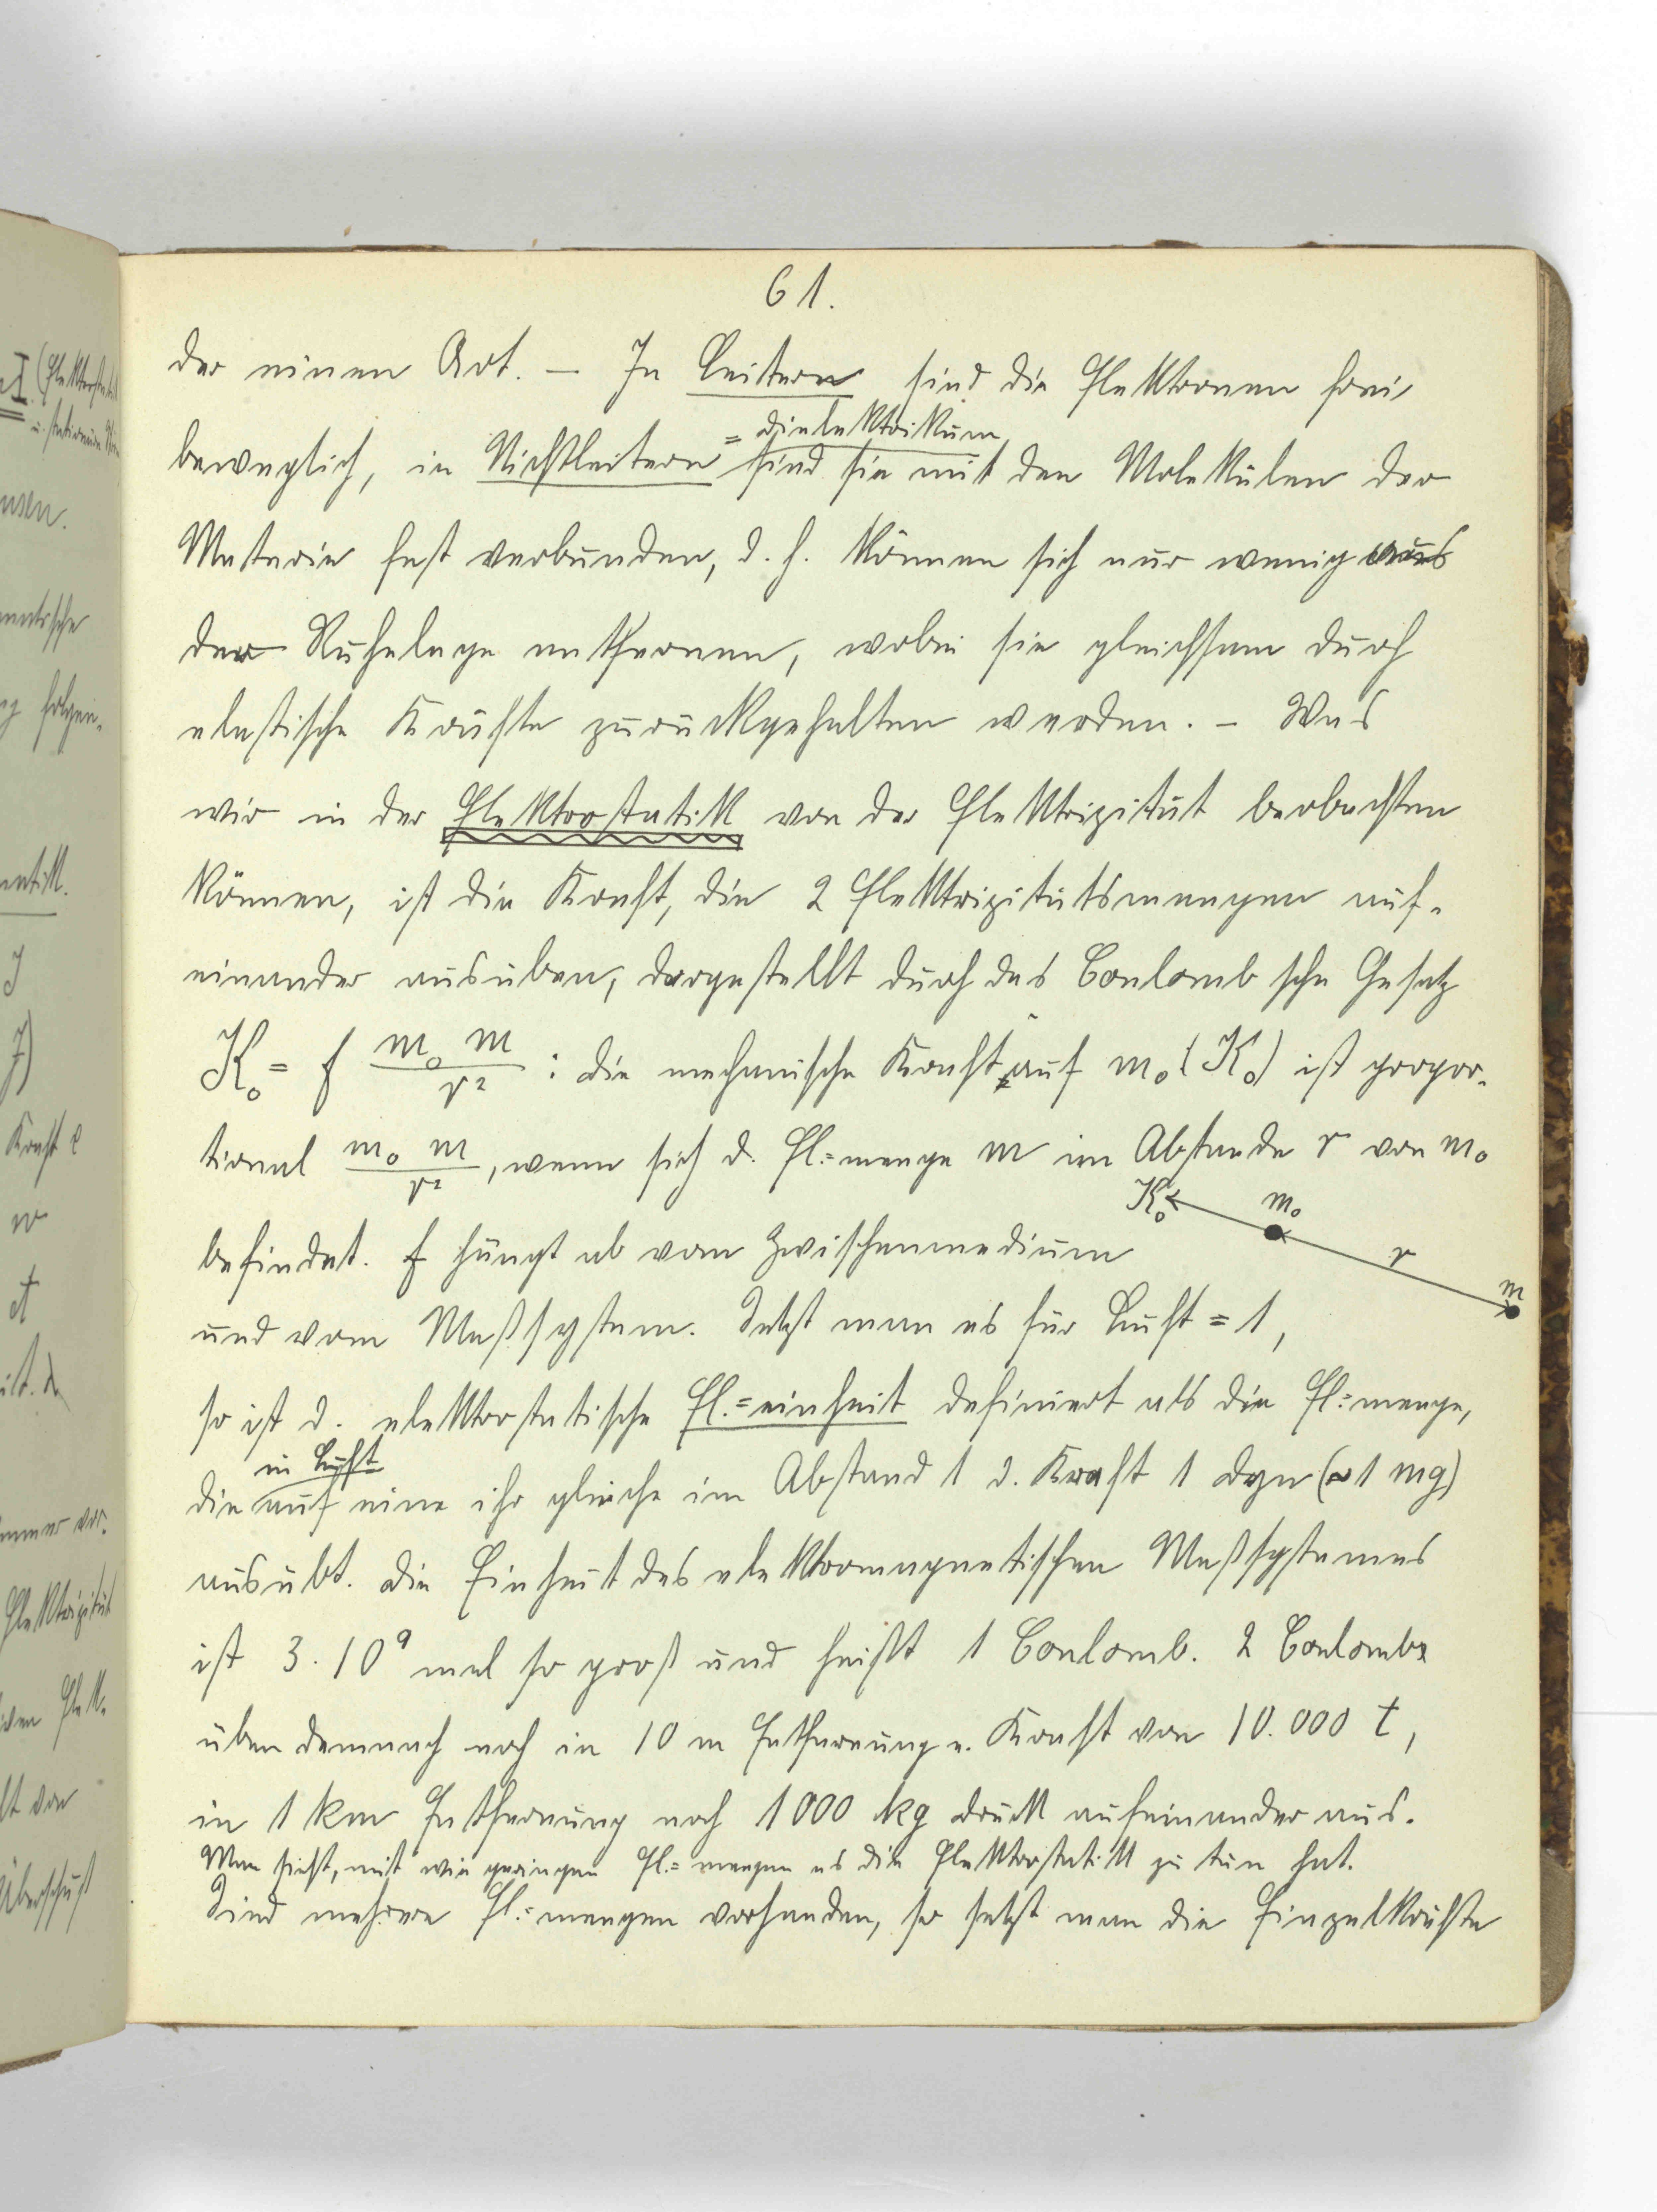 61.
der einen Art. – In Leitern sind die Elektronen frei
= Dielektrikum
beweglich, in Nichtleitern sind sie mit den Molekülen der
Materie fest verbunden, d. h. können sich nur wenig aus
der Ruhelage entfernen, wobei sie gleichsam durch
elastische Kräfte zurückgehalten werden. – Was
wir in der Elektrostatik von der Elektrizität beobachten
können, ist die Kraft, die 2 Elektrizitätsmengen auf-
einander ausüben, dargestellt durch das Coulomb sche Gesetz
K₀ = f m₀ m / r² : die mechanische Kraft auf m₀ (K₀) ist propor-
tional m₀ m / r², wenn sich d. El.=menge m im Abstande r von m₀
K₀ m₀ r m
befindet. f hängt ab vom Zwischenmedium
und vom Maßsystem. Setzt man es für Luft = 1,
so ist d. elektrostatische El.=einheit definiert als die El.=menge,
in Luft
die auf eine ihr gleiche im Abstand 1 d. Kraft 1 Dyn (~1 mg)
ausübt. Die Einheit des elektromagnetischen Maßsystemes
ist 3.10⁹ mal so groß und heißt 1 Coulomb. 2 Coulombs
üben demnach noch in 10 m Entfernung e. Kraft von 10.000 t,
in 1 km Entfernung noch 1000 kg Druck aufeinander aus.
Man sieht, mit wie geringen El.=mengen es die Elektrostatik zu tun hat.
Sind mehrere El.=mengen vorhanden, so setzt man die Einzelkräfte